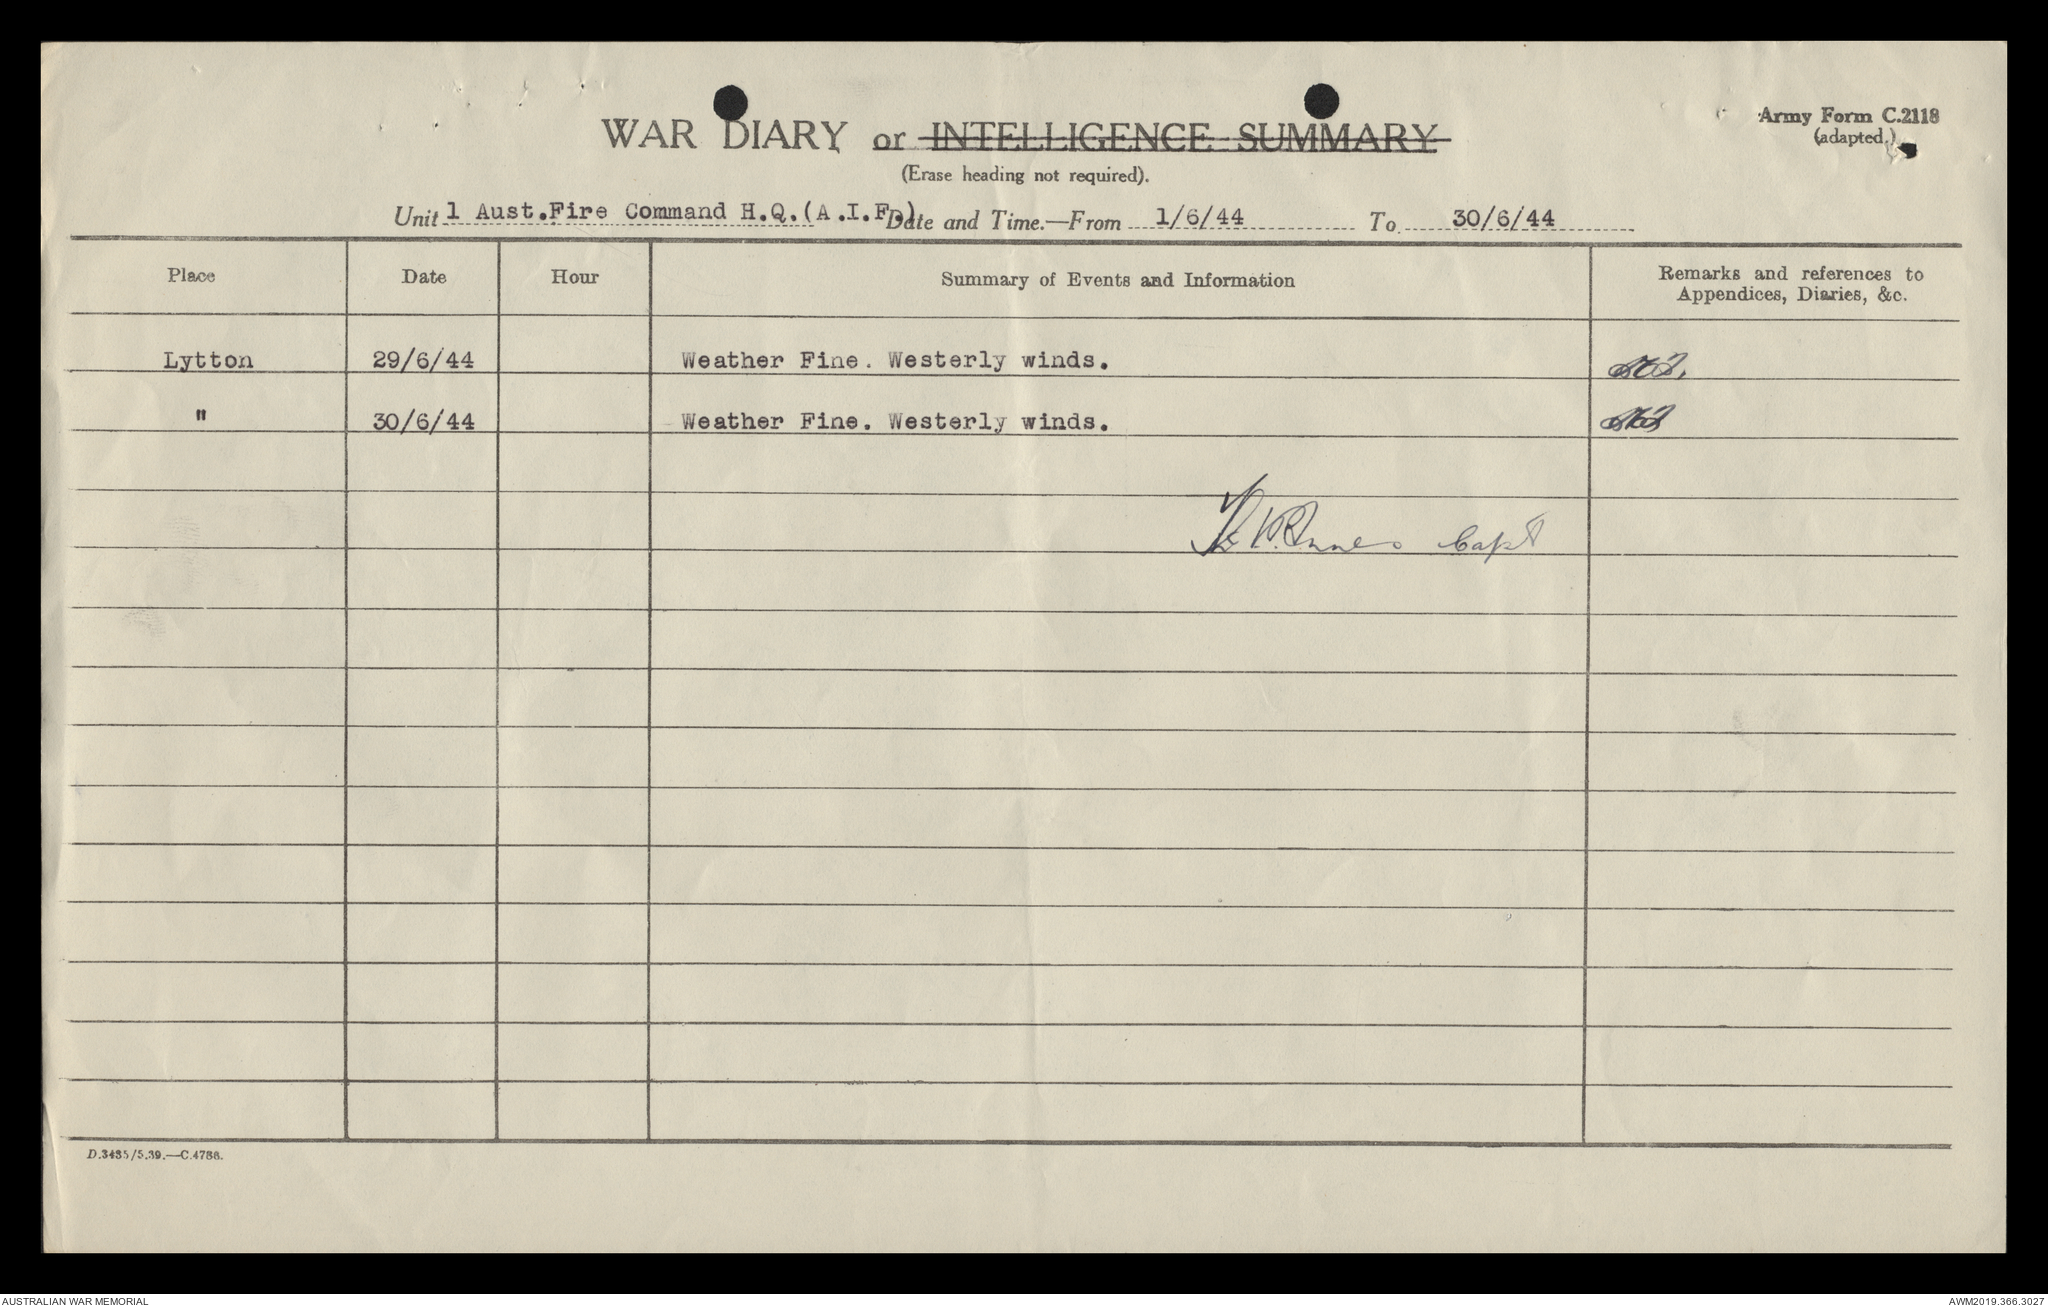 WAR DIARY or INTELLIGENCE SUMMARY
Army Form C.2118
(adapted.)
(Erase heading not required).
Unit 1 Aust.Fire Command H.Q.(A.I.F.) Date and Time.—From 1/6/44 To 30/6/44
Place Date Hour Summary of Events and Information Remarks and references to
Appendices, Diaries, &c.
Lytton 29/6/44 Weather Fine. Westerly winds.
" 30/6/44 Weather Fine. Westerly winds.
Capt
D.3435/5.39.—C.4786.
AUSTRALIAN WAR MEMORIAL AWM2019.366.3027